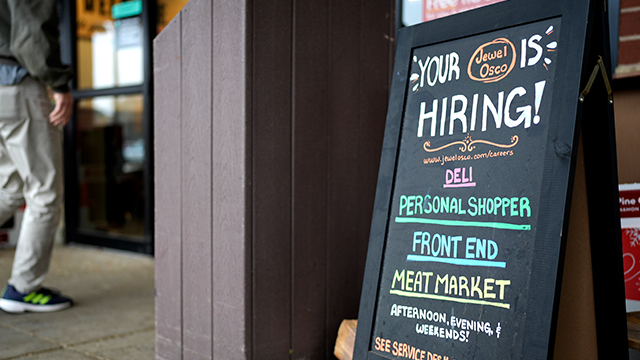 YOUR Jewel Osco IS
HIRING!
www.jewelosco.com/careers
DELI
PERSONAL SHOPPER
FRONT END
MEAT MARKET
AFTERNOON, EVENING, &
WEEKENDS!
SEE SERVICE DESK